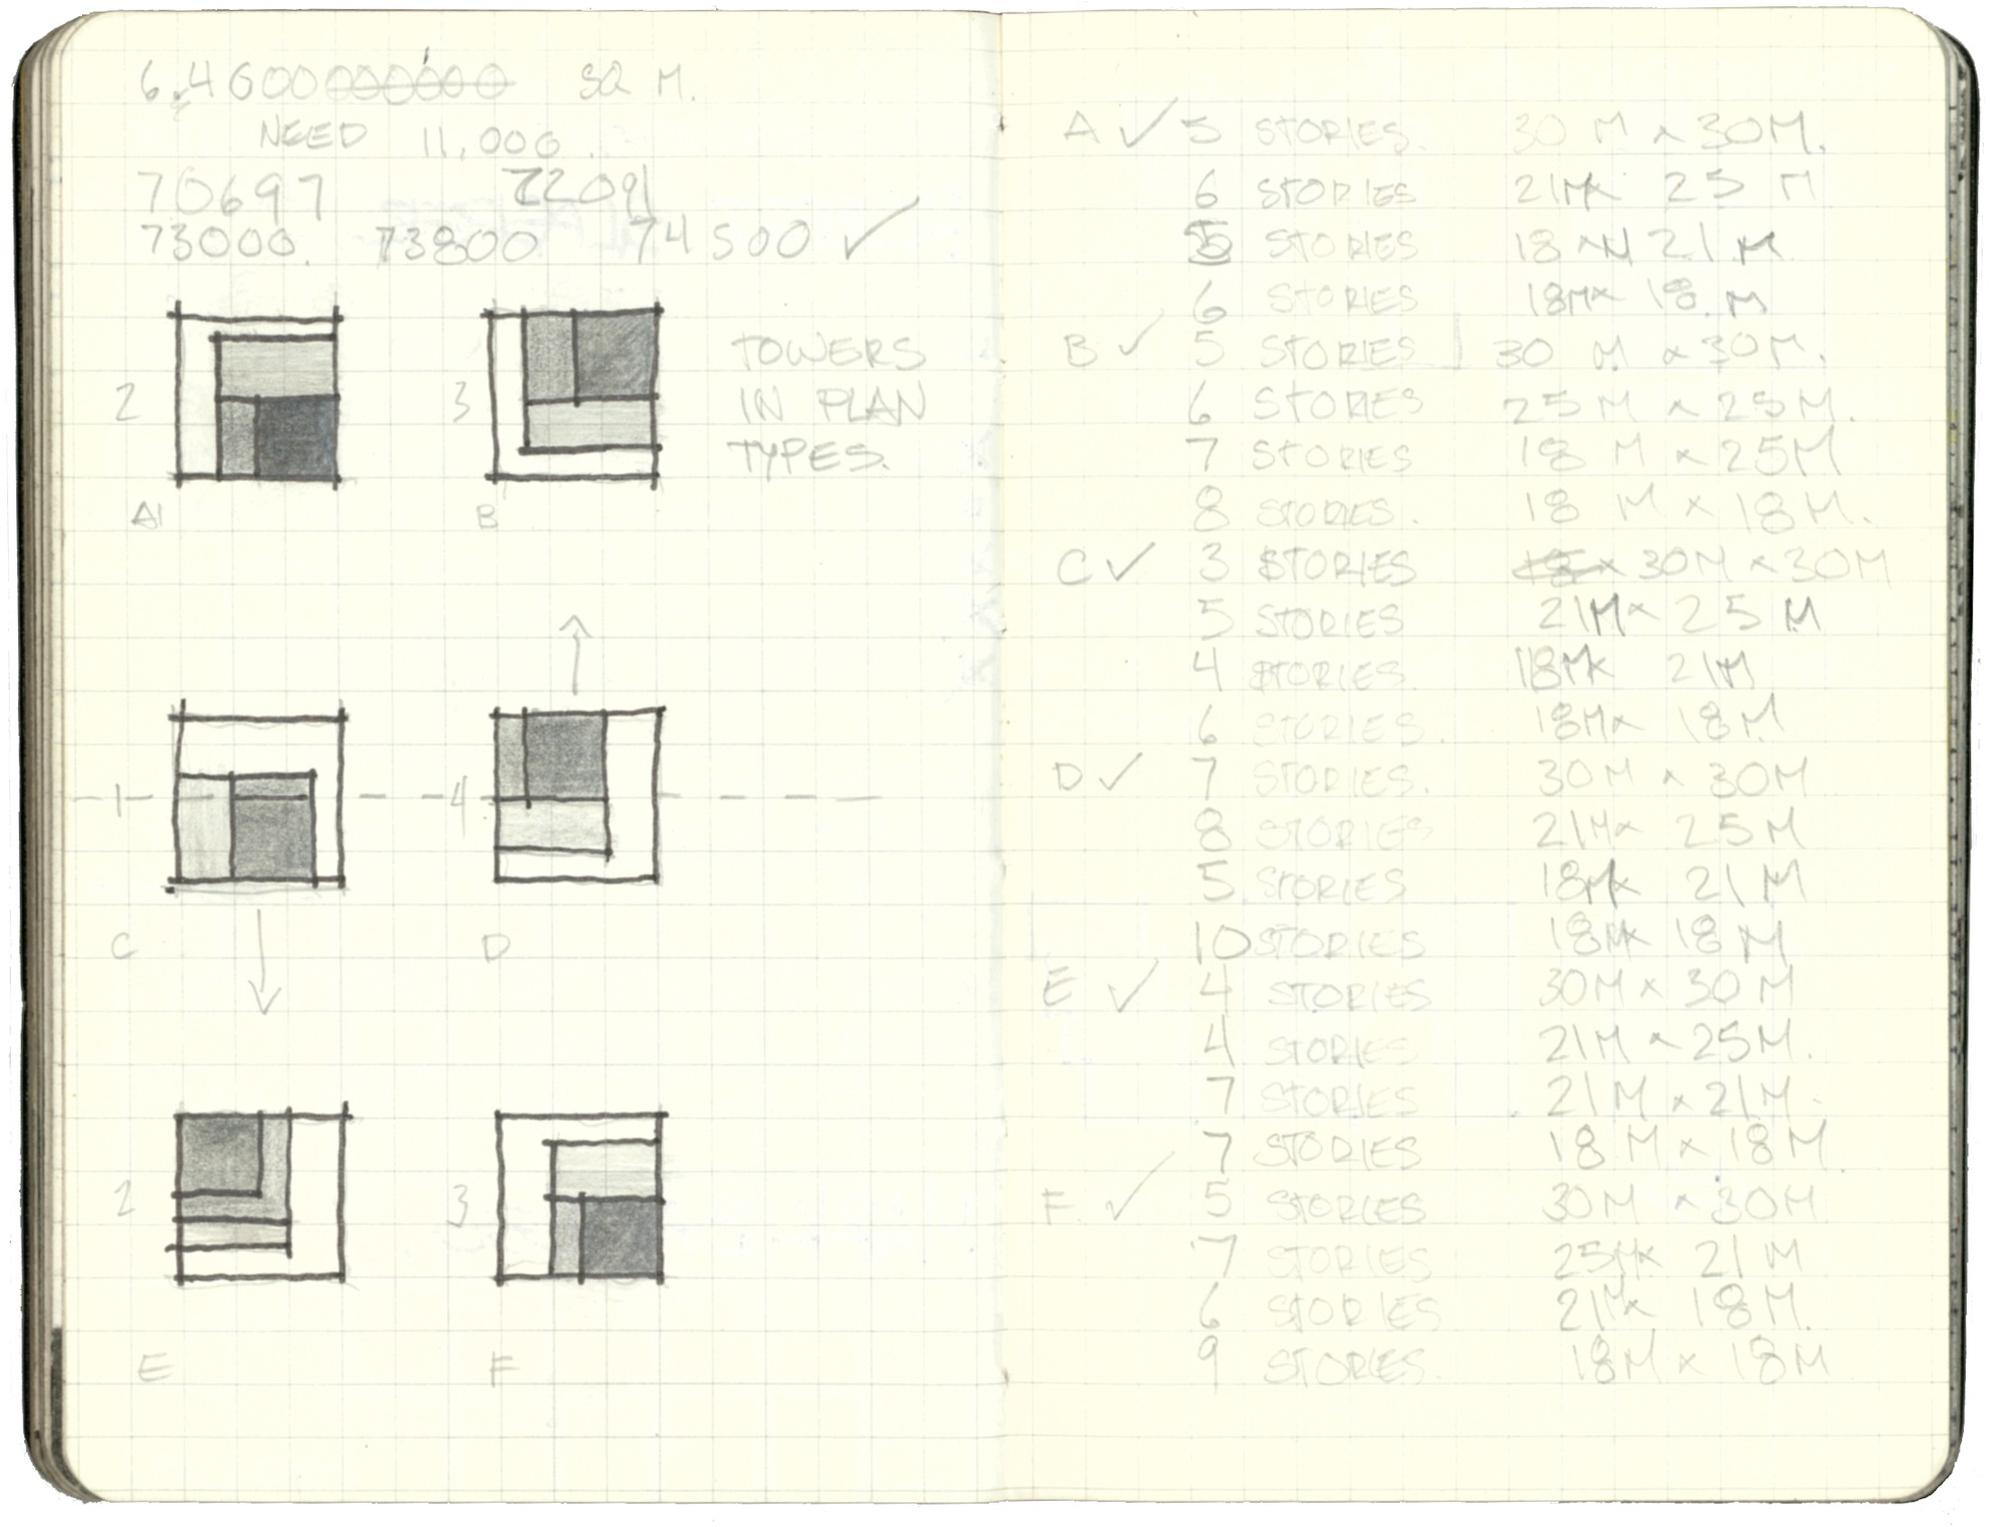 SQ M.
NEED 11,000.
70697 72091
73000. 73800 74500 ✓
2
3
TOWERS
IN PLAN
TYPES.
A
B
1
4
C
D
2
3
E
F
A ✓ 5 STORIES. 30 M x 30M.
6 STORIES 21M x 25 M
5 STORIES 18 M 21 M
6 STORIES 18M x 18. M
B ✓ 5 STORIES 30 M x 30M.
6 STORIES 25 M x 25M.
7 STORIES 18 M x 25M
8 STORIES. 18 M x 18M.
C ✓ 3 STORIES 30M x 30M
5 STORIES 21M x 25 M
4 STORIES. 18M x 21M
6 STORIES. 18M x 18M
D ✓ 7 STORIES. 30M x 30M
8 STORIES 21M x 25M
5 STORIES 18M x 21M
10 STORIES 18M x 18M
E ✓ 4 STORIES 30M x 30M
4 STORIES 21M x 25M.
7 STORIES 21M x 21M.
7 STORIES 18M x 18M.
F. ✓ 5 STORIES 30M x 30M
7 STORIES 25M x 21M
6 STORIES 21M x 18M.
9 STORIES. 18M x 18M